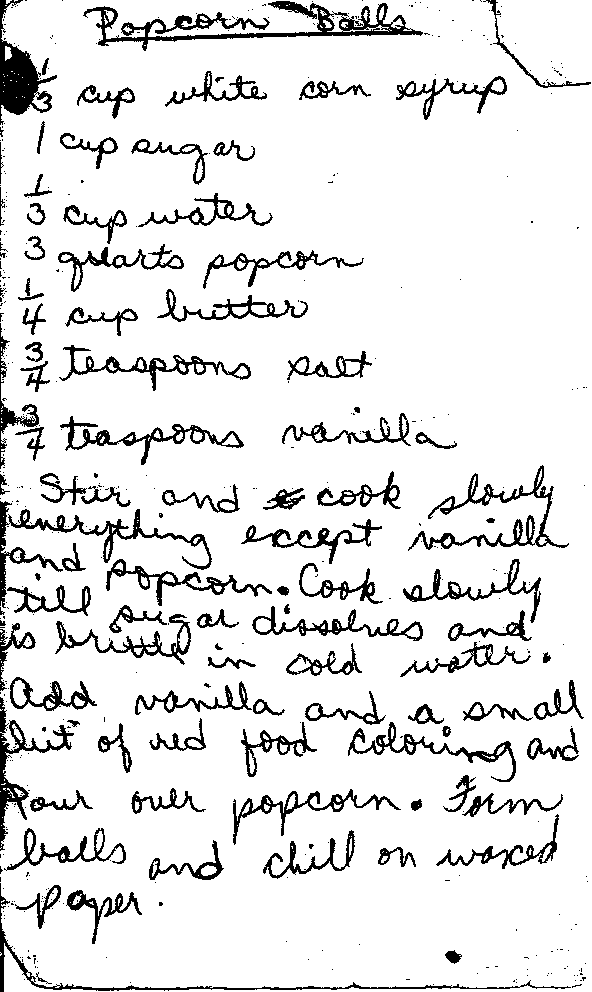 Popcorn Balls
1/3 cup white corn syrup
1 cup sugar
1/3 cup water
3 quarts popcorn
1/4 cup butter
3/4 teaspoons salt
3/4 teaspoons vanilla
Stir and cook slowly
everything except vanilla
and popcorn. Cook slowly
till sugar dissolves and
is brittle in cold water.
Add vanilla and a small
bit of red food coloring and
Pour over popcorn. Form
balls and chill on waxed
paper.